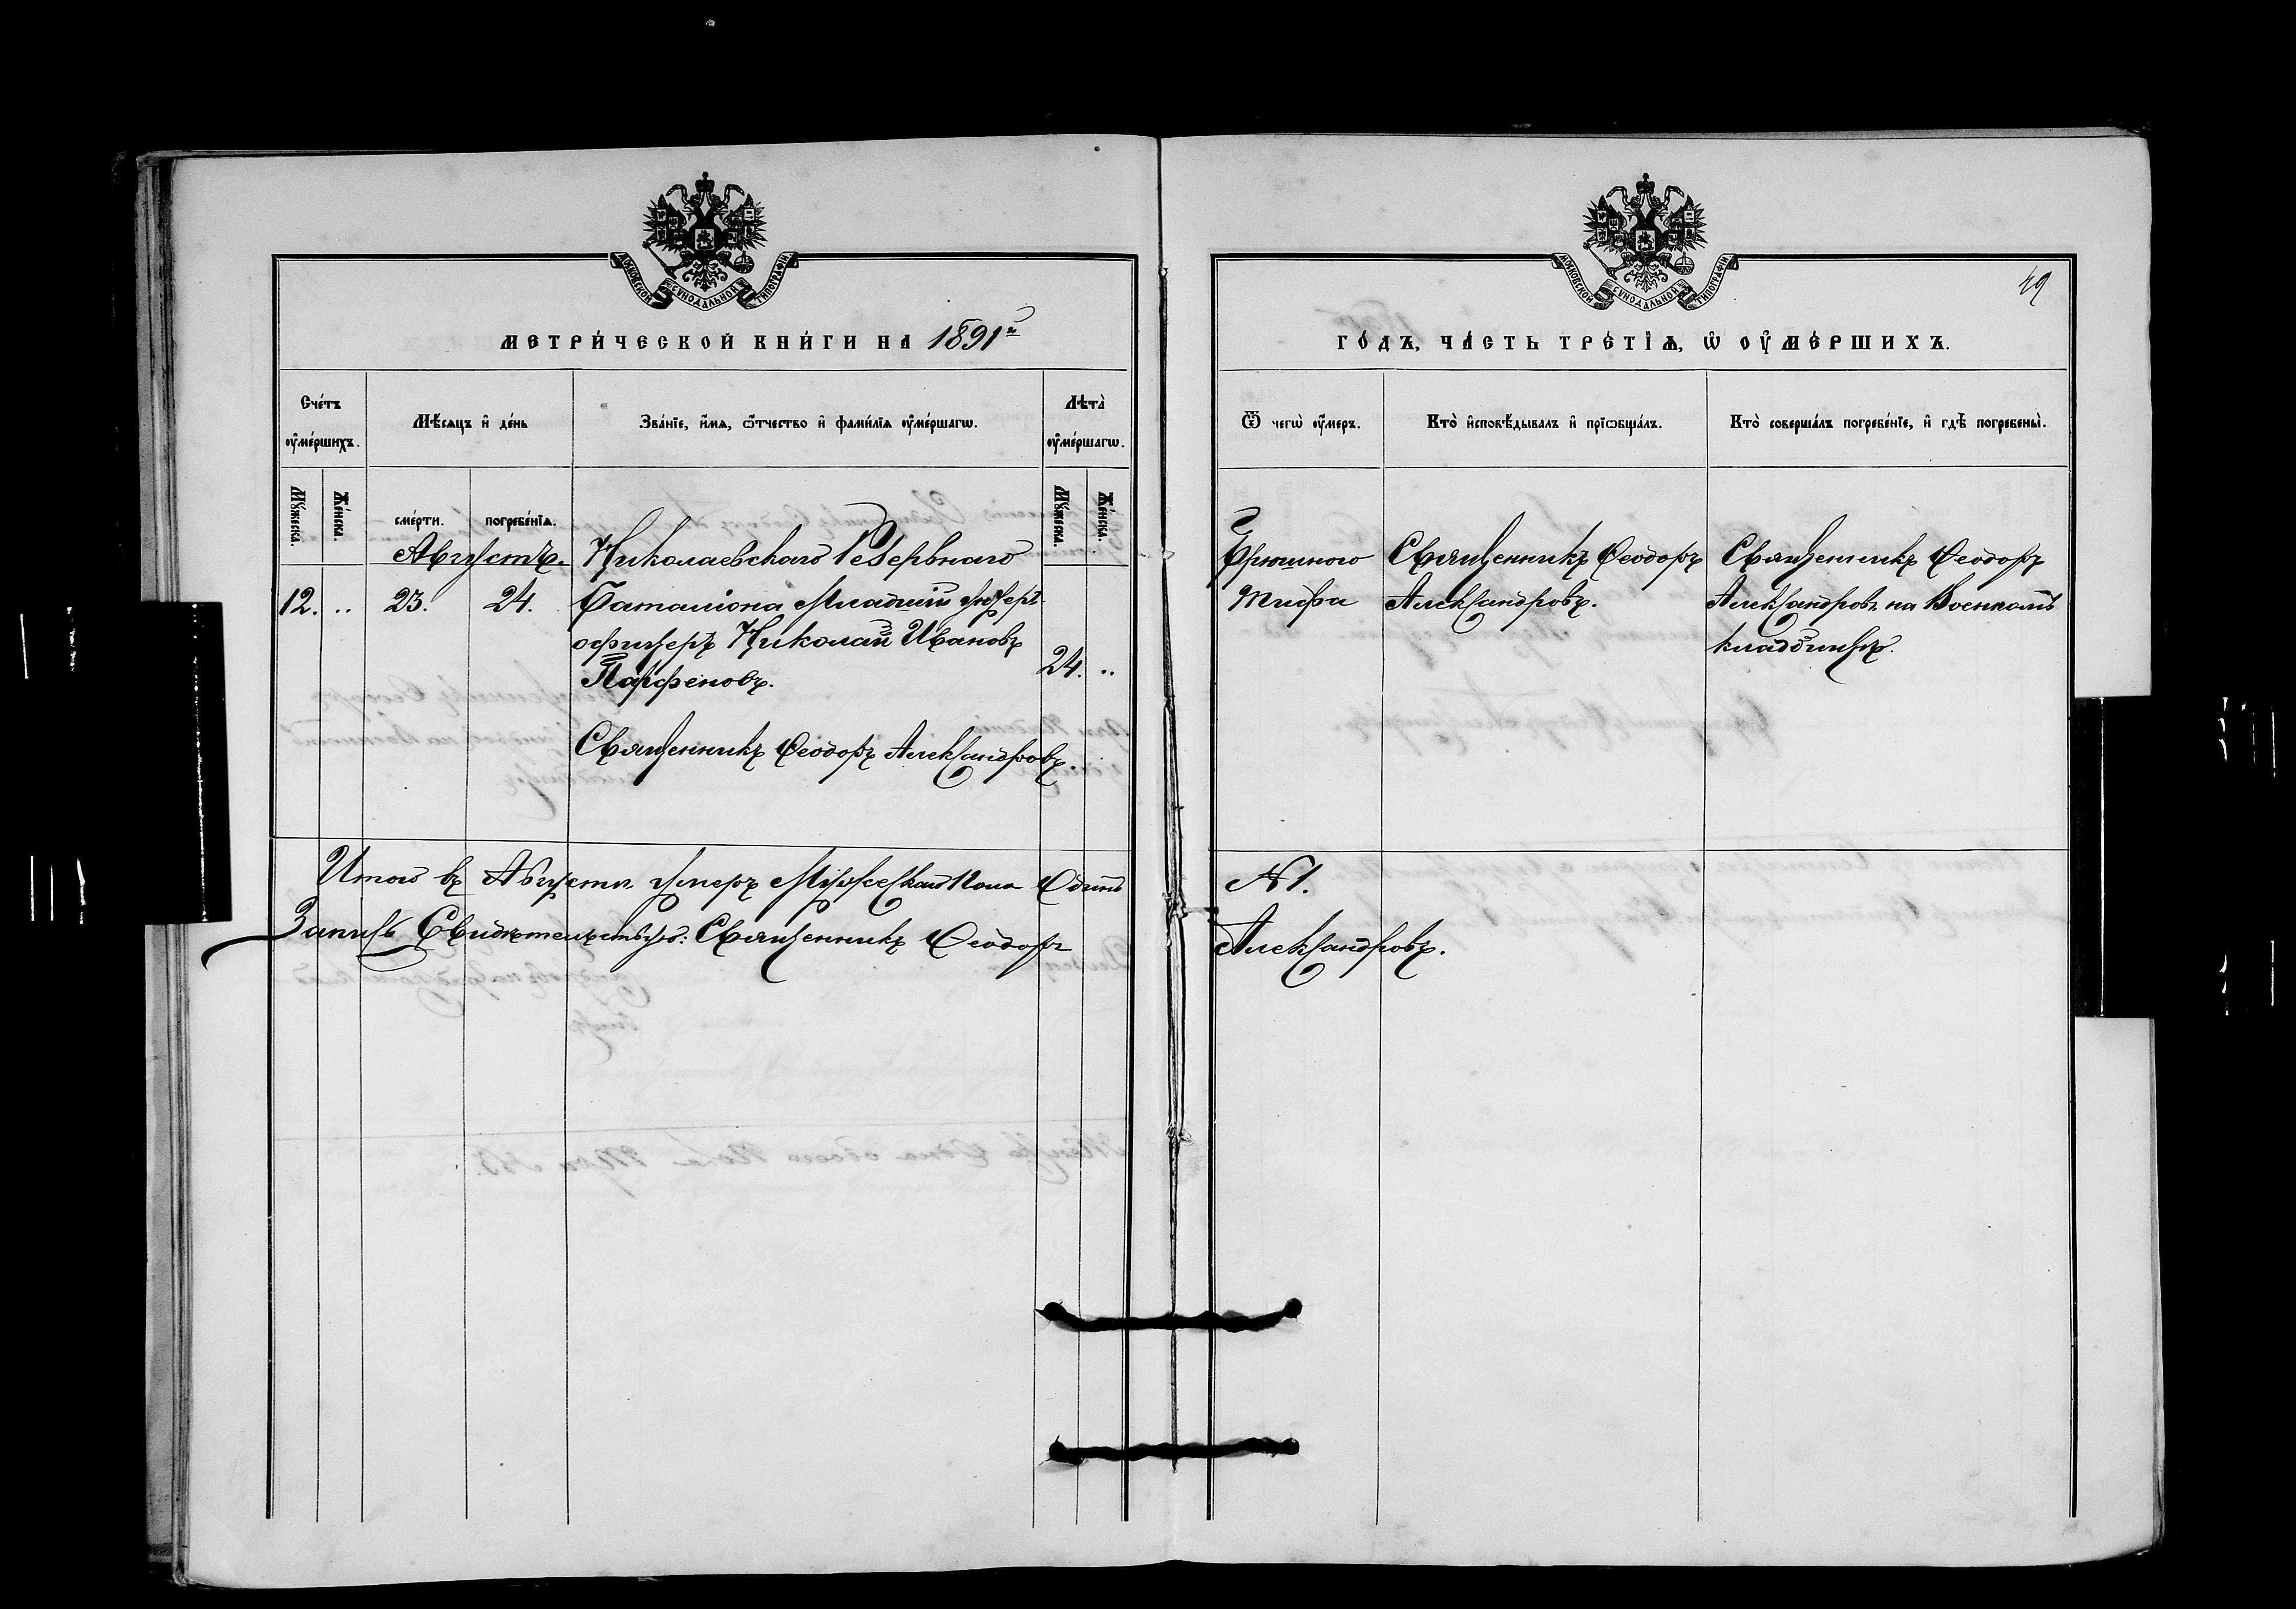 МОСКОВСКОЙ СУНОДАЛЬНОЙ ТИПОГРАФІИ
МЕТРИ́ЧЕСКОЙ КНИ́ГИ НА 1891й
Сче́тъ оу҆ме́ршихъ.
Мѣ́сяцъ и҆ де́нь
Зва́нїе, и҆́мѧ, ѻ҆́тчество и҆ фами́лїѧ оу҆ме́ршагѡ.
Лѣта̀ оу҆ме́ршагѡ.
Мꙋ́жеска.
Же́нска.
сме́рти.
погребе́нїѧ.
Мꙋ́жеска.
Же́нска.
Августъ.
12. .. 23. 24.
Николаевскаго Резервнаго
Баталіона Младшій Унтеръ-
офицеръ Николай Ивановъ
Парфеновъ.
24. ..
Священникъ Ѳеодоръ Александровъ.
Итого въ Августѣ умеръ Мужескаго Пола Одинъ
Запись Свидѣтельствую: Священникъ Ѳеодоръ
МОСКОВСКОЙ СУНОДАЛЬНОЙ ТИПОГРАФІИ
49
ГО́ДЪ, ЧА́СТЬ ТРЕ́ТЇѦ, Ѡ҆ ОУ҆МЕ́РШИХЪ.
Ѿ чегѡ̀ оу҆́меръ.
Кто̀ и҆сповѣ́дывалъ и҆ прїѡбща́лъ.
Кто̀ соверша́лъ погребе́нїе, и҆ гдѣ̀ погребены̀.
Брюшного
Тифа
Священникъ Ѳеодоръ
Александровъ.
Священникъ Ѳеодоръ
Александровъ на Военномъ
кладбищѣ.
№ 1.
Александровъ.